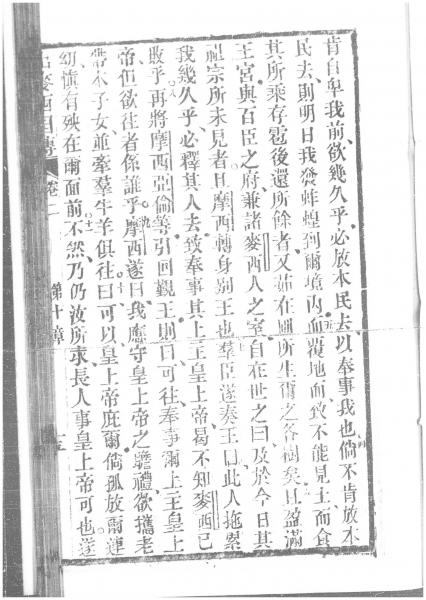 肯自卑我前、欲幾久乎、必放本民去、以奉事我也、倘不肯放本
民去、則明日我發蚱蝗到爾境內、而覆地面、致不能見土、而食
其所乘存雹後還所餘者、又茹在田所生爾之各樹矣、且盈滿
王宮與百臣之府、兼諸麥西人之室、自在世之日、及於今日、其
祖宗所未見者、且摩西轉身別王也、羣臣遂奏王曰、此人拖累
我幾久乎、必釋其人去、致奉事其上主皇上帝、曷不知麥西已
敗乎、再將摩西亞倫等引回覲王、則曰、可往奉事爾上主皇上
帝、但欲往者係誰乎、摩西遂曰、我應守皇上帝之瞻禮、欲攜老
帶木子女、並牽羣牛羊俱往、曰、可以、皇上帝庇爾、倘孤放爾連
幼、慎有殃在爾面前、不然、乃仍汝所求、長人事皇上帝可也、遂
麥西國傳 卷二 第十章